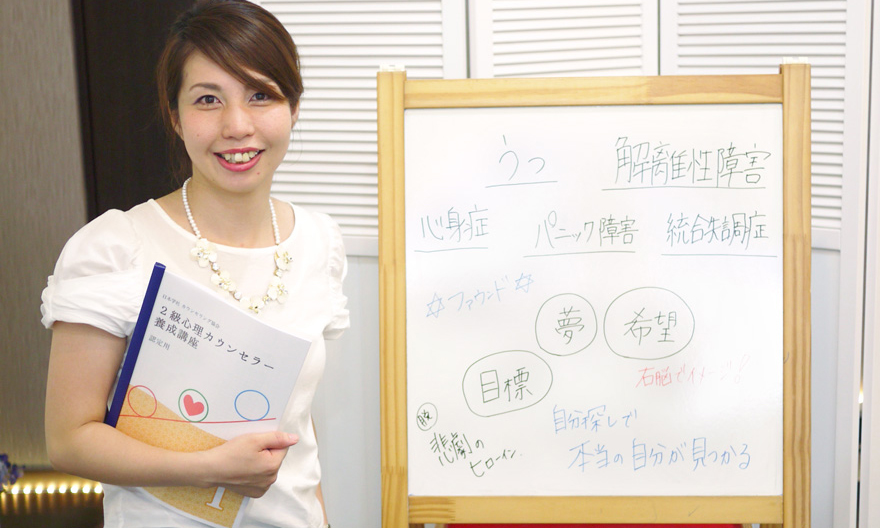 うつ
解離性障害
心身症
パニック障害
統合失調症
☆ファウンド☆
夢
希望
目標
右脳でイメージ!!
自分探しで
本当の自分が見つかる
悲劇の
ヒロイン
2級心理カウンセラー
養成講座
認定用
1